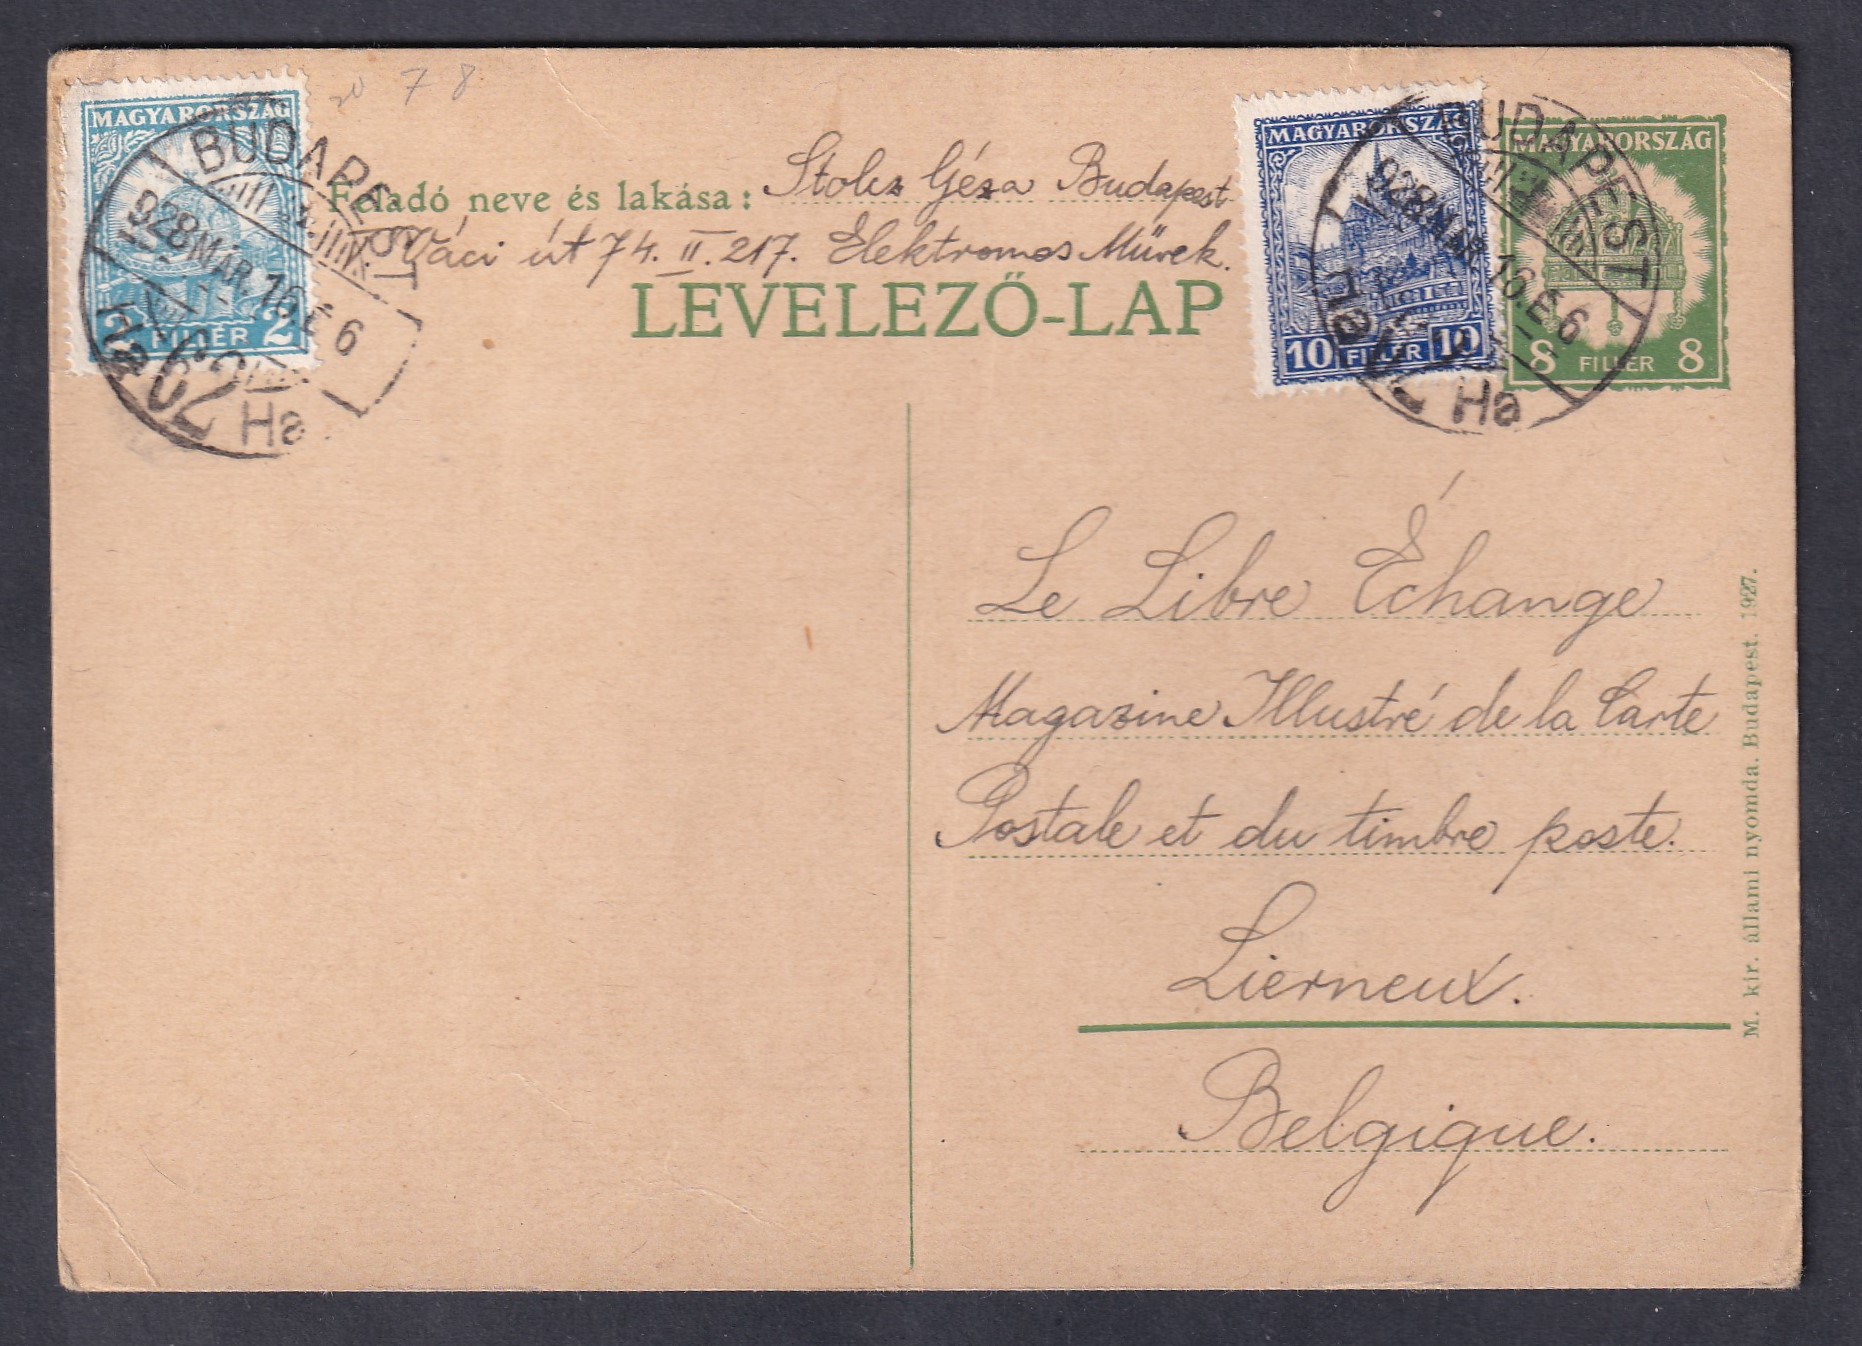 20 7 8
MAGYARORSZÁG
2 FILLÉR 2
BUDAPEST
928 MÁR. 16. É 6
72
Ha Ha
MAGYARORSZÁG
10 FILLÉR 10
MAGYARORSZÁG
8 FILLÉR 8
BUDAPEST
928 MÁR. 16. É 6
72
Ha Ha
Feladó neve és lakása: Stolcz Géza Budapest
Váci út 74. II. 217. Elektromos Művek.
LEVELEZŐ-LAP
Le Libre Échange
Magazine Illustré de la Carte
Postale et du timbre poste.
Lierneux.
Belgique.
M. kir. állami nyomda. Budapest. 1927.